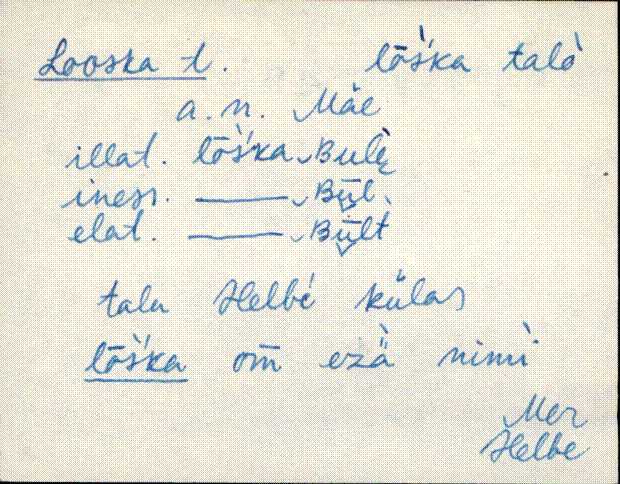 Looska t. lōš́ka talò
a. n. Mäe
illat. lōš́ka Bulè̮
iness. ——— Būl
elat. ——— Būlt
talu Helbé külas
lōš́ka om̄ ezä̀ nimì
Mer
Helbe